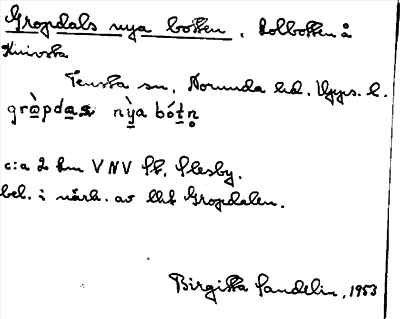 Gropdals nya botten, kolbotten å
Knivsta
Tensta sn, Norunda hd, Upps. l.
grò̱pda̱s nỳ̱a bót̲n̥
c:a 2 km VNV St. Ålesby.
bel. i närh. av lht Gropdalen.
Birgitta Sandelin, 1953